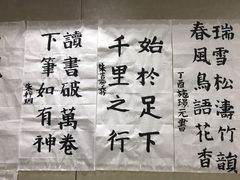 瑞雪松濤竹韻
春風鳥語花香
丁酉施璟元書
始於足下
千里之行
讀書破萬卷
下筆如有神